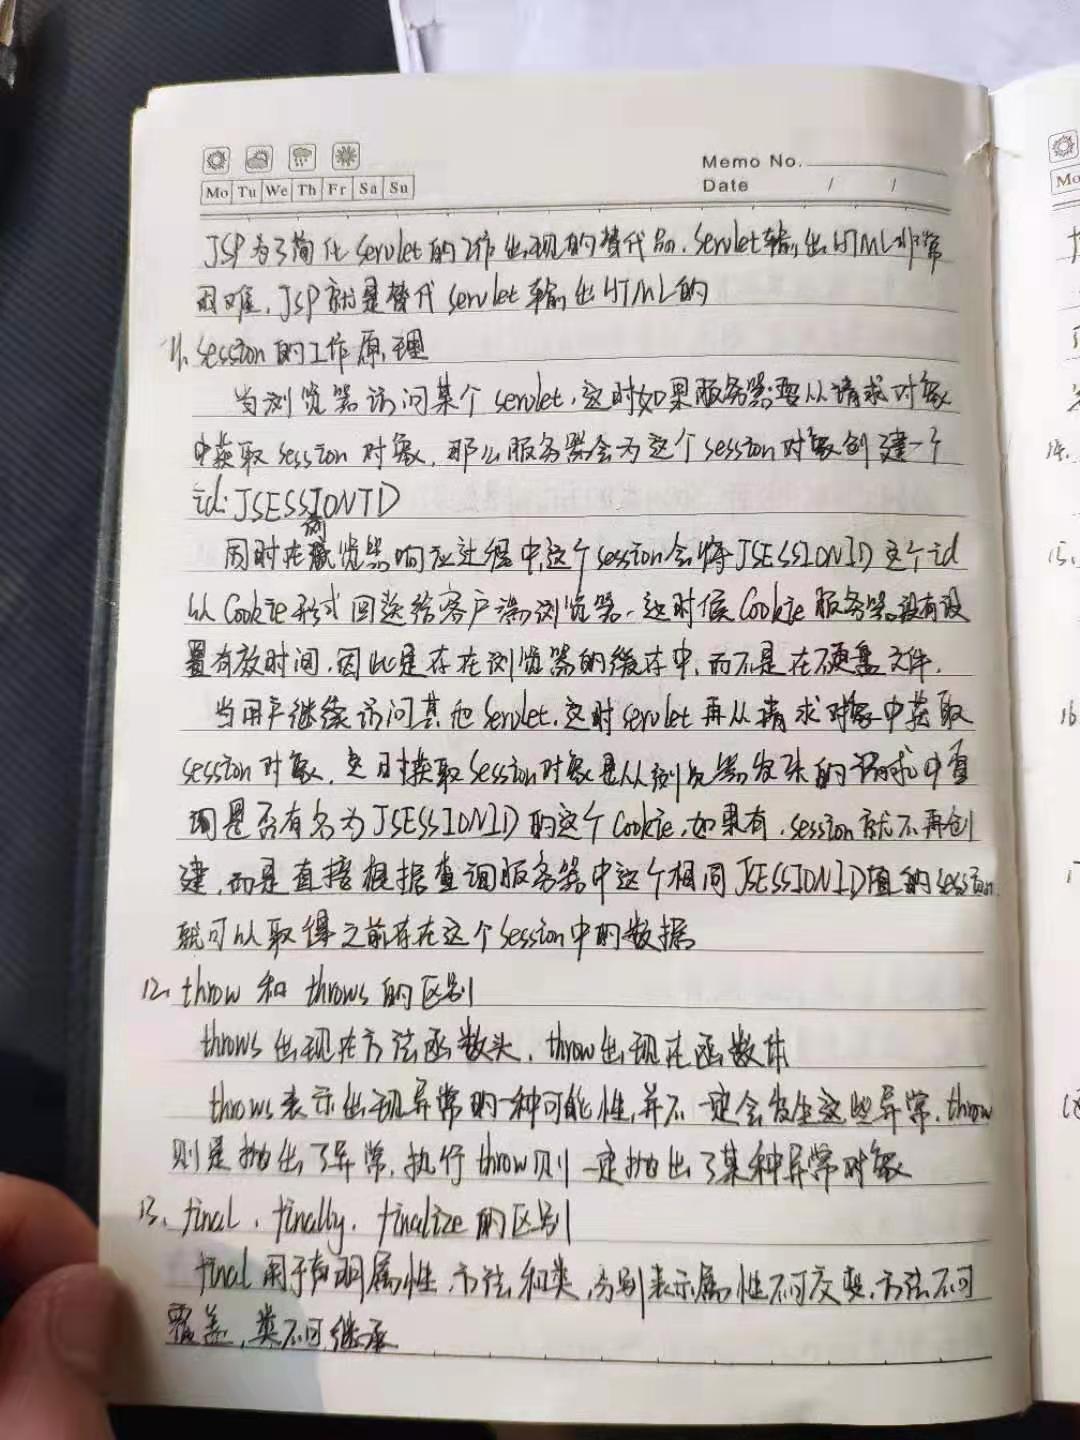 Memo No.
Mo Tu We Th Fr Sa Su
Date / /
JSP为了简化Servlet的工作出现的替代品.Servlet输出HTML非常
困难,JSP就是替代Servlet输出HTML的
11.session的工作原理
当浏览器访问某个servlet,这时如果服务器要从请求对象
中获取session对象,那么服务器会为这个session对象创建一个
id:JSESSIONID
同时在浏览器响应过程中,这个session会将JSESSIONID这个id
以Cookie形式回送给客户端浏览器,这时候Cookie服务器没有设
置有效时间,因此是存在浏览器的缓存中,而不是在硬盘文件.
当用户继续访问其他Servlet,这时servlet再从请求对象中获取
session对象,这时获取session对象是从浏览器发来的请求中查
询是否有名为JSESSIONID的这个Cookie,如果有,session就不再创
建,而是直接根据查询服务器中这个相同JSESSIONID值的session.
就可以取得之前存在这个session中的数据
12.throw和throws的区别
throws出现在方法函数头,throw出现在函数体
throws表示出现异常的一种可能性,并不一定会发生这些异常,throw
则是抛出了异常,执行throw则一定抛出了某种异常对象
13.final,finally,finalize的区别
final用于声明属性,方法和类,分别表示属性不可交变,方法不可
覆盖,类不可继承
Mo
14.
15.
16.